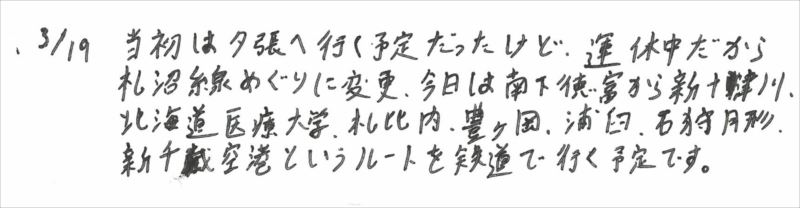 3/19 当初は夕張へ行く予定だったけど、運休中だから
札沼線めぐりに変更、今日は南下徳富から新十津川、
北海道医療大学、札比内、豊ヶ岡、浦臼、石狩月形、
新千歳空港というルートを鉄道で行く予定です。